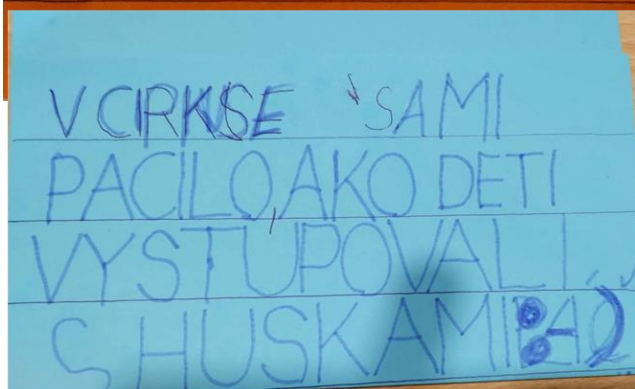 V CIRKUSE SA MI
PACILO, AKO DETI
VYSTUPOVALI
S HUSKAMI